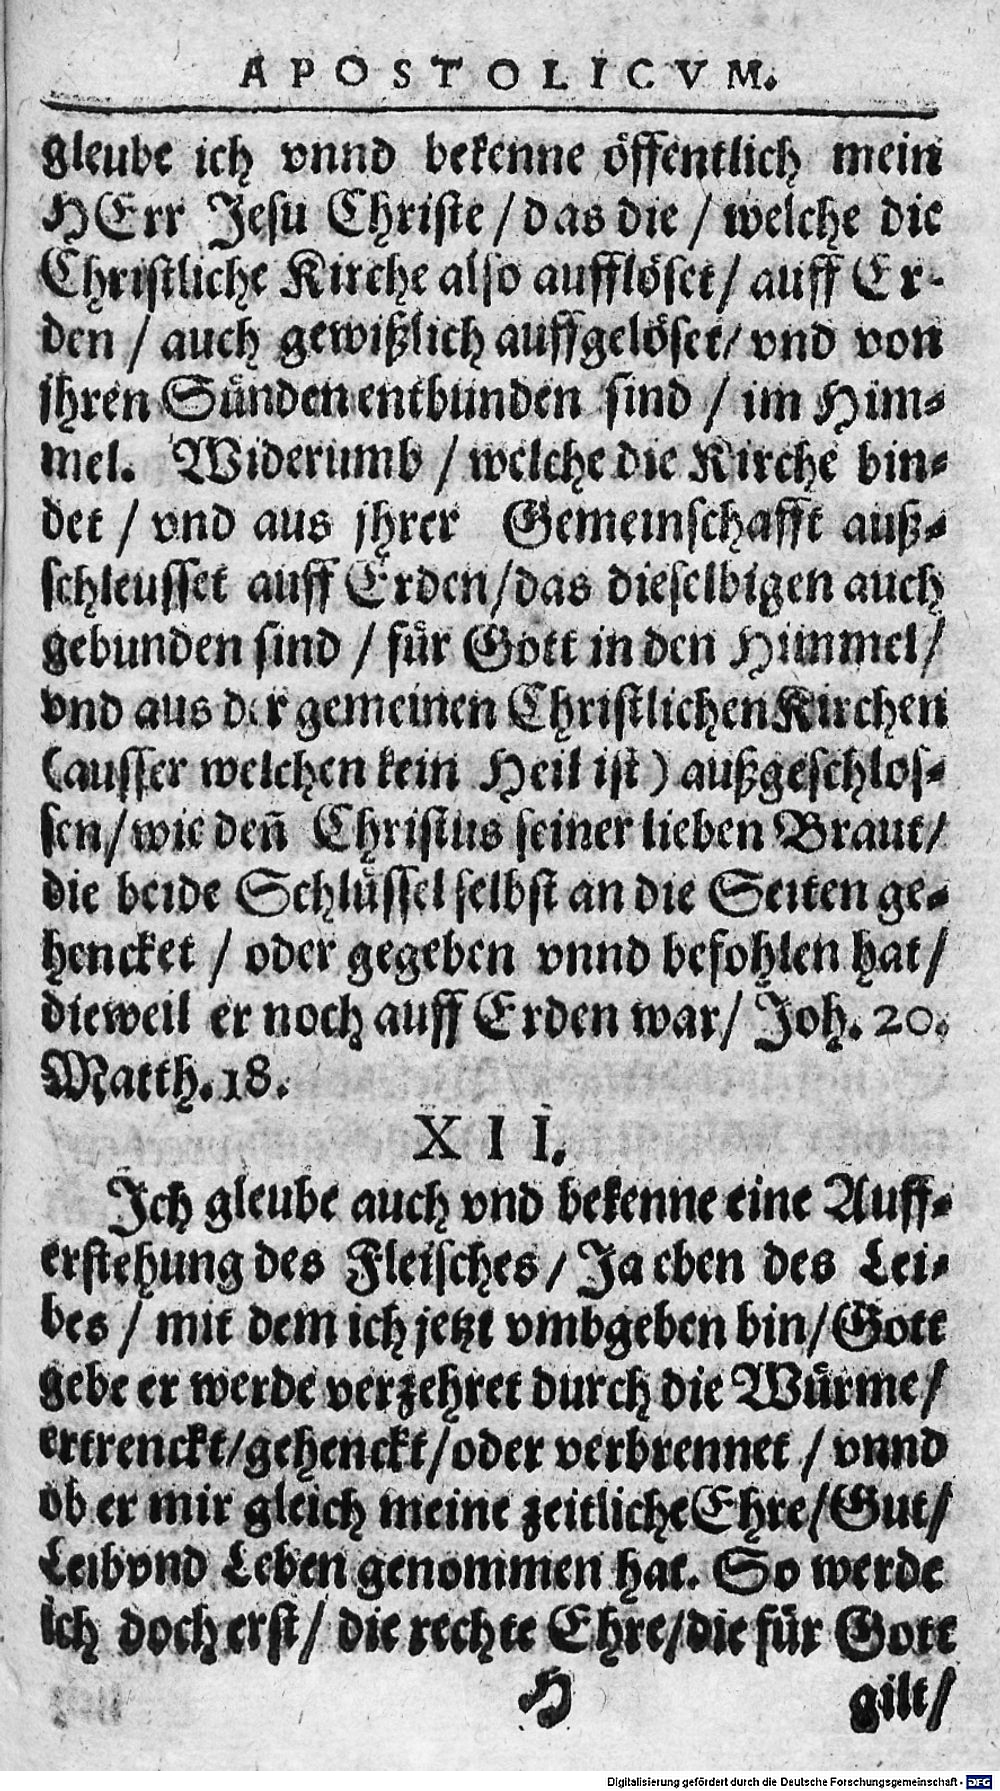 APOSTOLICVM.
gleube ich vnnd bekenne öffentlich mein
HErr Jesu Christe / das die / welche die
Christliche Kirche also aufflöset / auff Er-
den / auch gewißlich auffgelöset / vnd von
jhren Sünden entbunden sind / im Him-
mel. Widerumb / welche die Kirche bin-
det / vnd aus jhrer Gemeinschafft auß-
schleusset auff Erden / das dieselbigen auch
gebunden sind / für Gott in den Himmel /
vnd aus der gemeinen Christlichen Kirchen
(ausser welchen kein Heil ist) außgeschlos-
sen / wie deñ Christus seiner lieben Braut /
die beide Schlüssel selbst an die Seiten ge-
hencket / oder gegeben vnnd befohlen hat /
dieweil er noch auff Erden war / Joh. 20.
Matth. 18.
XII.
Ich gleube auch vnd bekenne eine Auff-
erstehung des Fleisches / Ja eben des Lei-
bes / mit dem ich jetzt vmbgeben bin / Gott
gebe er werde verzehret durch die Würme /
ertrenckt / gehenckt / oder verbrennet / vnnd
ob er mir gleich meine zeitliche Ehre / Gut /
Leib vnd Leben genommen hat. So werde
ich doch erst / die rechte Ehre / die für Gott
H gilt /
Digitalisierung gefördert durch die Deutsche Forschungsgemeinschaft - DFG